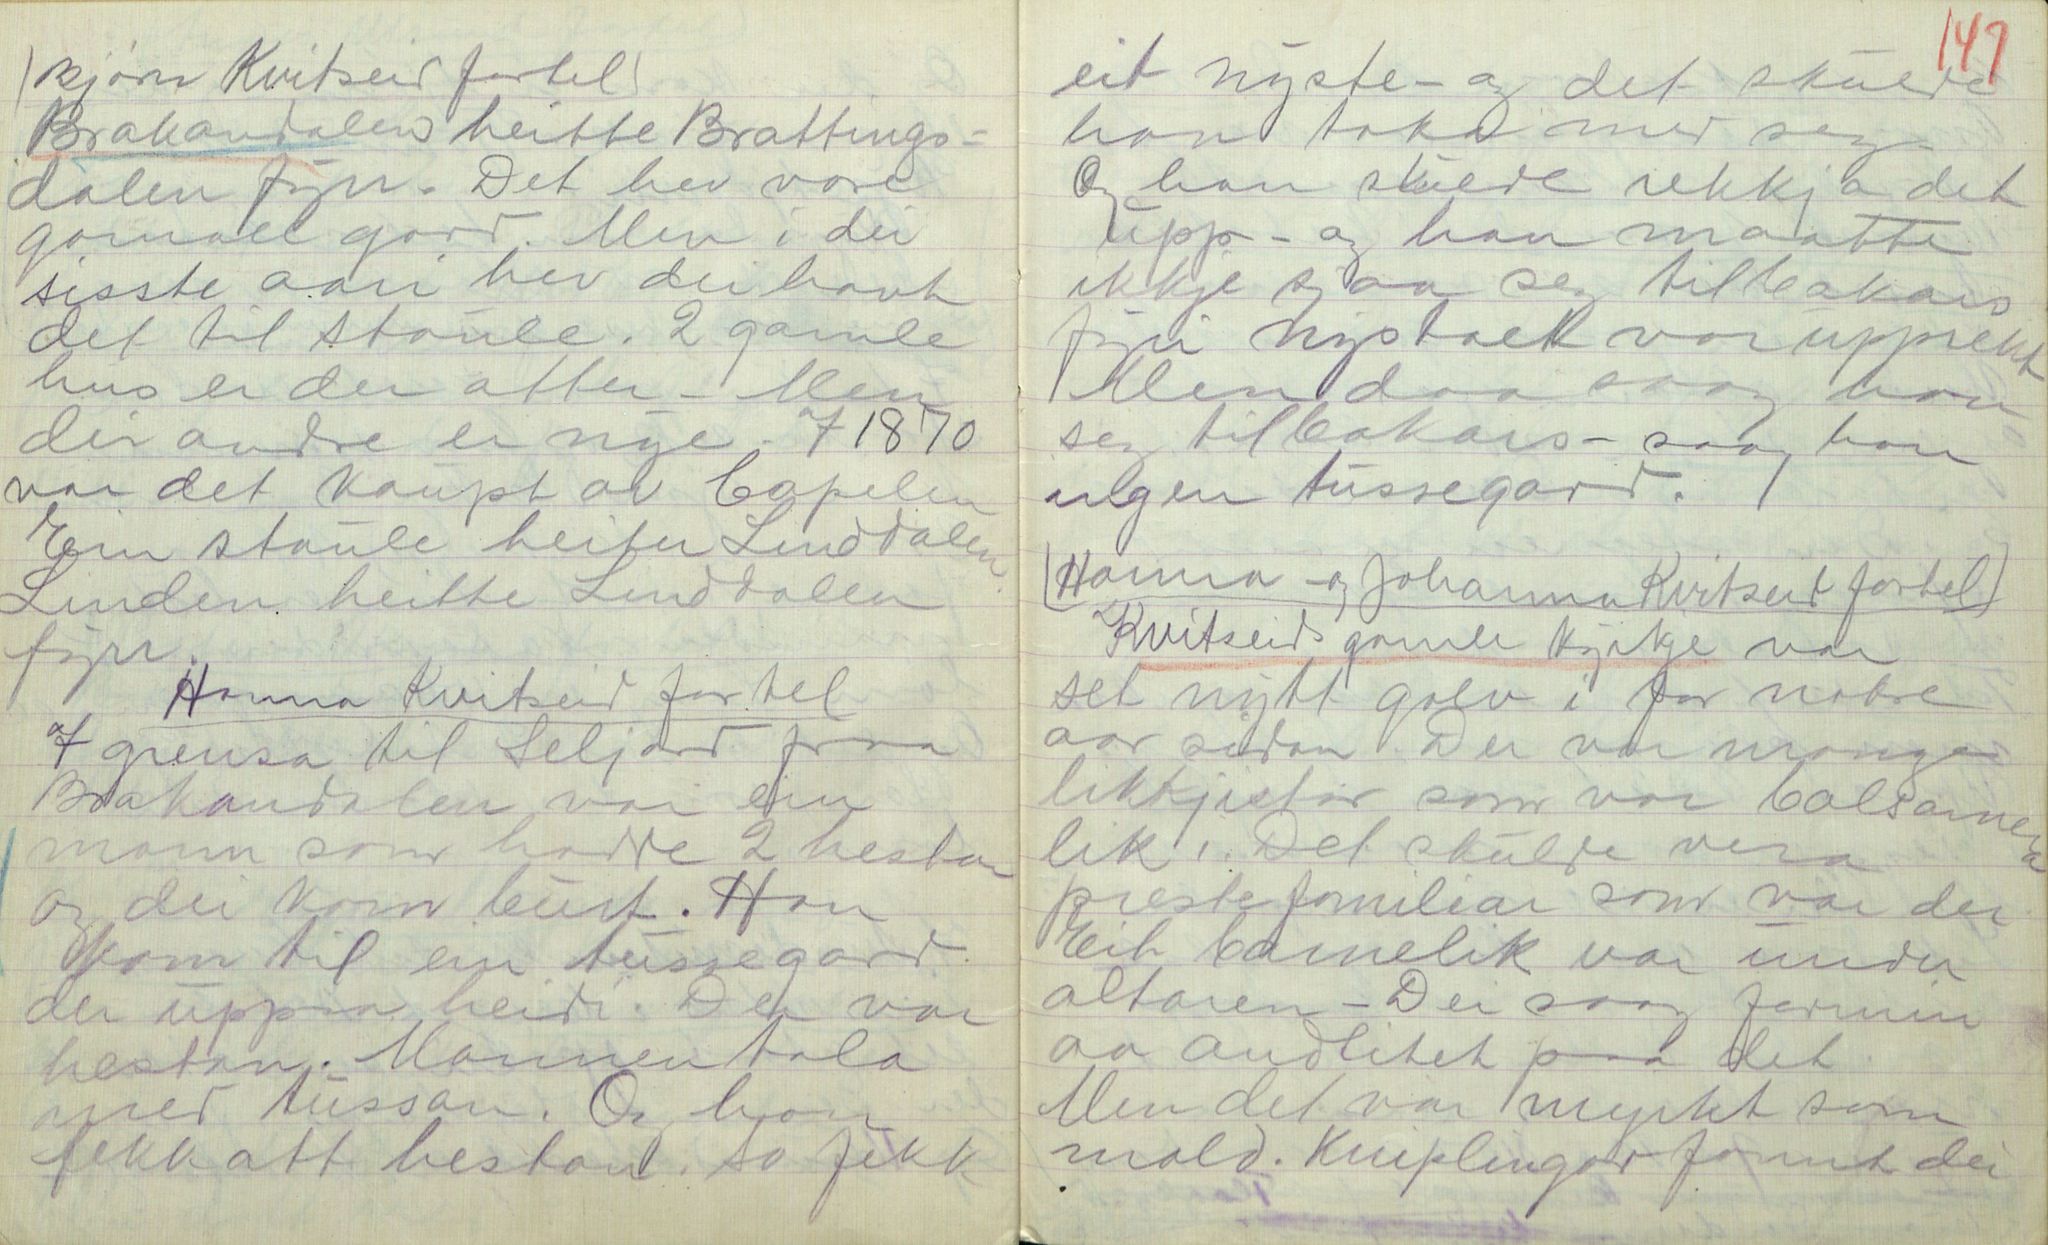 (Bjørn Kvitseid fortel)
Brakandalen heitte Brattings-
dalen fyrr. Det hev vore
gamall gard. Men i dei
sisste aari hev dei havt
det til støule. 2 gamle
hus er der atter - Men
dei andre er nye. I 1870
var det kaupt av Capelen
Ein støule heiter Lenddalen.
Linden heitte Lenddalen
fyrr.
Hanna Kvitseid fortel
I grensa til Seljord fraa
Brakandalen var ein
mann som hadde 2 hestar
og dei kom burt. Han
kom til ein tussegard
der uppaa heidi. Der var
hestan. Mannen tala
med tussan. Og han
fekk att hestan. So fekk
147
eit nyste - og det skulde
han taka med seg.
Og han skulde rekkja det
upp - og han maatte
ikkje sjaa seg tilbakars
fyrr nystaet var upprekt
Men daa saag han
seg tilbakars - saag han
ingen tussegard.
(Hanna og Johanna Kvitseid fortel)
Kvitseids gamle kyrkje var
set nytt golv i for nokre
aar sidan. Der var mange
likkjistor som var balsamera
lik i. Det skulde vera
prestefamiliar som var der
Eit barnelik var under
altaren - Dei saag formin
av andlitet paa det
Men det var myrkt som
mold. Kniplingar fannt dei